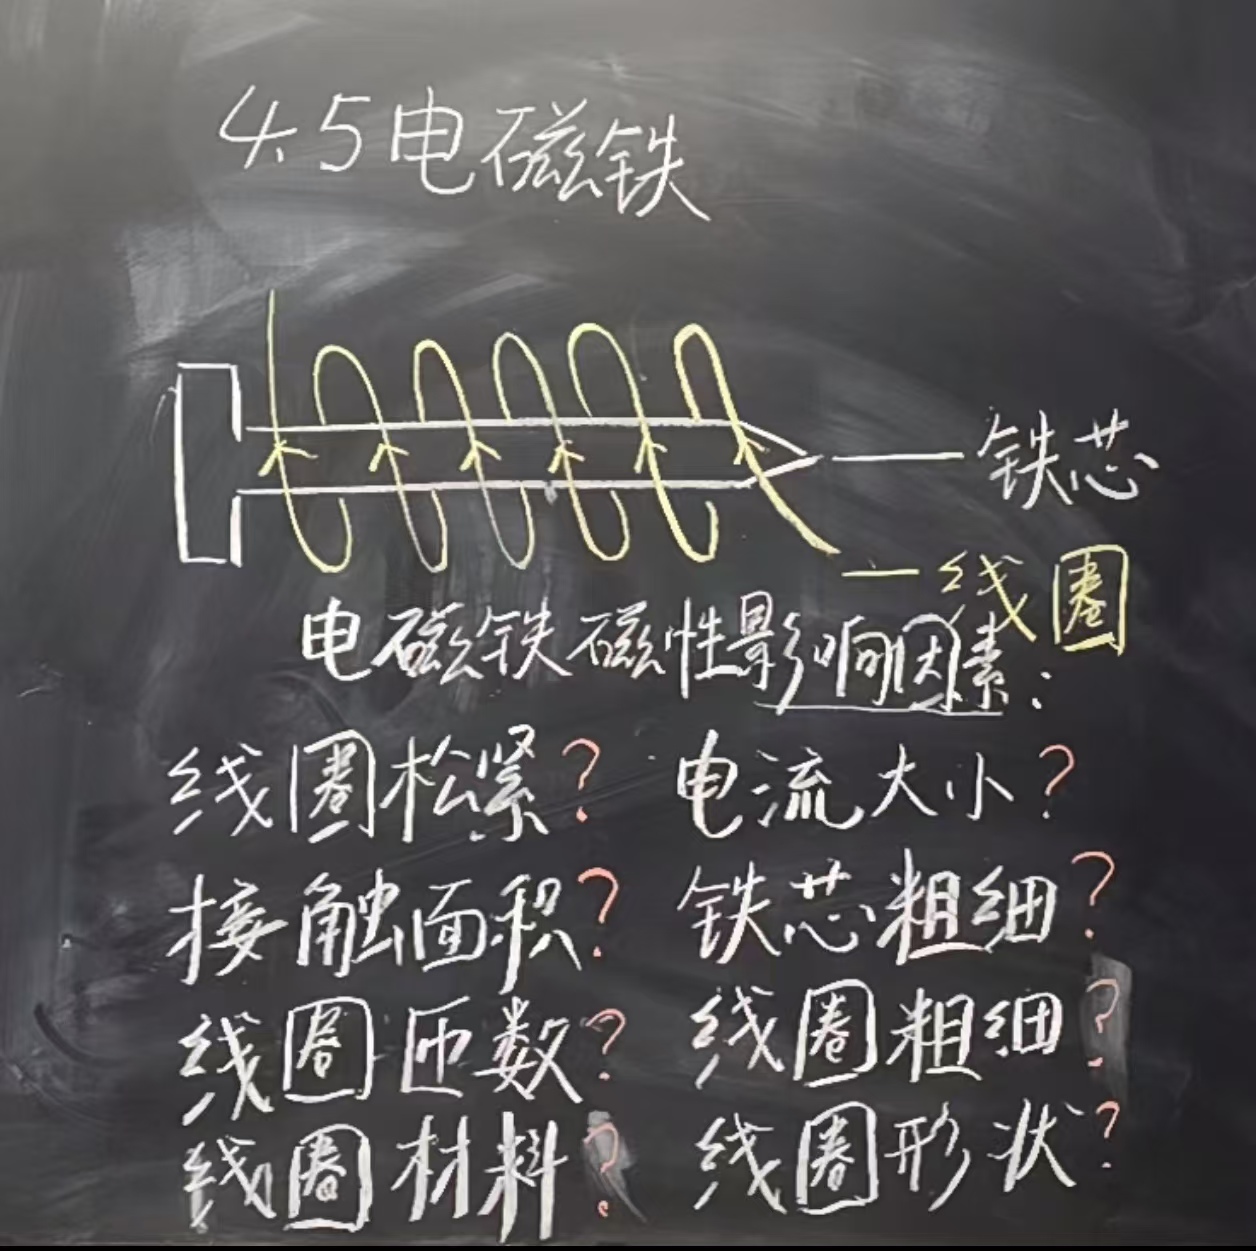 4.5电磁铁
铁芯
线圈
电磁铁磁性影响因素:
线圈松紧? 电流大小?
接触面积? 铁芯粗细?
线圈匝数? 线圈粗细?
线圈材料? 线圈形状?